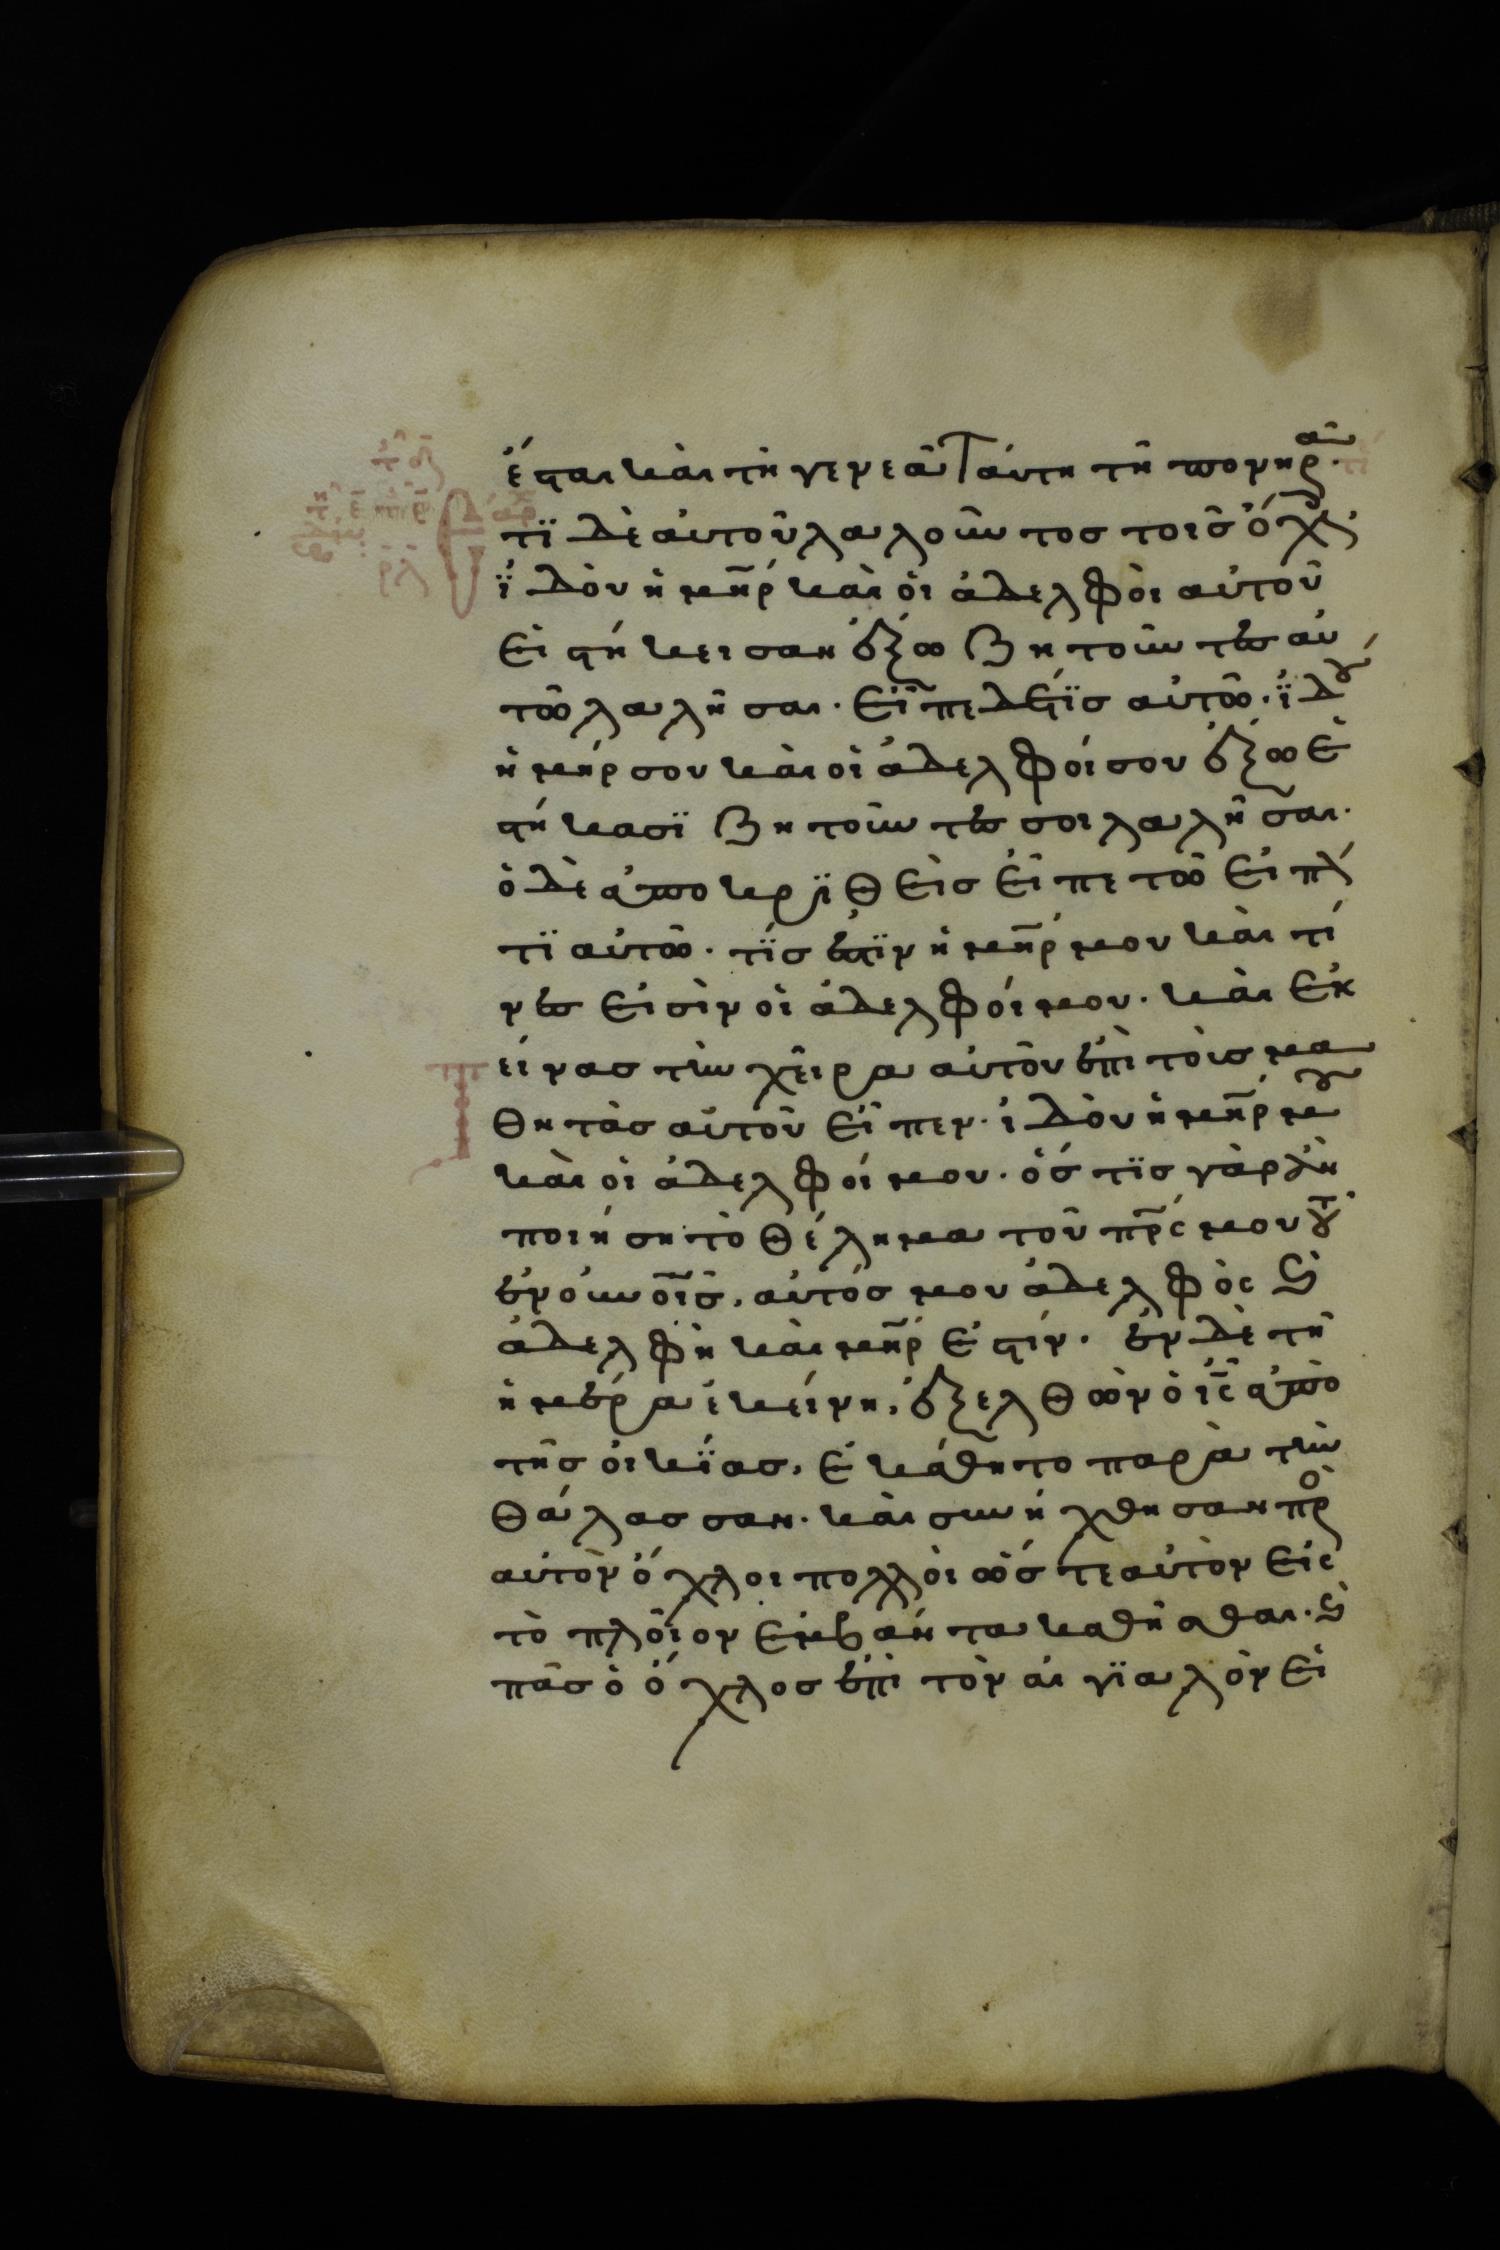 έσται και τη γενεᾶ Ταύτη τῆ πονηρᾶ·
τϊ δὲ αὐτοῦ λαλοῦντος τοῖς ὄχλ
ϊδοὺ ἡ μηρ καὶ οἱ ἀδελφὸι αὐτοῦ
εἱστήκεισαν ἔξω ζητοῦντες αὐ
τῶ λαλῆσαι· εἶπε δέ τϊς αὐτῶ· ϊδου
ἡ μηρ σου καὶ οἱ ἀδελφοί σου ἔξω ἑ
στήκασϊ ζητοῦντες σοι λαλῆσαι·
ὁ δὲ ἀποκρϊθεὶς εἶπε τῶ εἰπό
τϊ αὐτῶ· τϊς ἐστϊν ἡ μηρ μου καὶ τί
νες εἰσὶν οἱ ἀδελφοί μου· καὶ ἐκ
τείνας τὴν χεῖρα αὐτοῦ ἐπὶ τοὺς μα
θητὰς αὐτοῦ εἶπεν· ἰδοὺ ἡ μηρ μου
καὶ οἱ ἀδελφοί μου· ὅστϊς γὰρ ἂν
ποιήση τὸ θέλημα τοῦ πρς μου τοῦ
ἐν οὐνοις, αὐτός μου ἀδελφὸς ϗ
ἀδελφὴ καὶ μηρ ἐστίν· ἐν δὲ τῆ
ἡμέρα ἐκείνη, ἐξελθὼν ὁ ις ἀπὸ
τῆς οἰκϊας, ἐκάθητο παρὰ τὴν
θάλασσαν· καὶ συνήχθησαν πρὸ
αὐτὸν ὄχλοι πολλοὶ ὥστε αὐτὸν εἰς
τὸ πλοῖον ἐμβάντα καθῆσθαι· ϗ
πᾶς ὁ ὄχλος ἐπὶ τὸν αἰγϊαλὸν εἱ